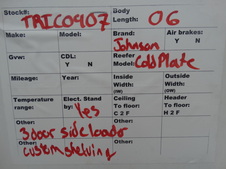 Stock#: TRICO907 Body Length: 06
Make: Model: Brand: Johnson Air brakes: Y N
Gvw: CDL: Y N Reefer Model: Cold Plate
Mileage: Year: Inside Width: (IW) Outside Width: (OW)
Temperature range: Elect. Stand by: Yes Ceiling To floor: C 2 F Header To floor: H 2 F
Other: 3 door side loader Other: Other:
custom shelving
Other: Other: